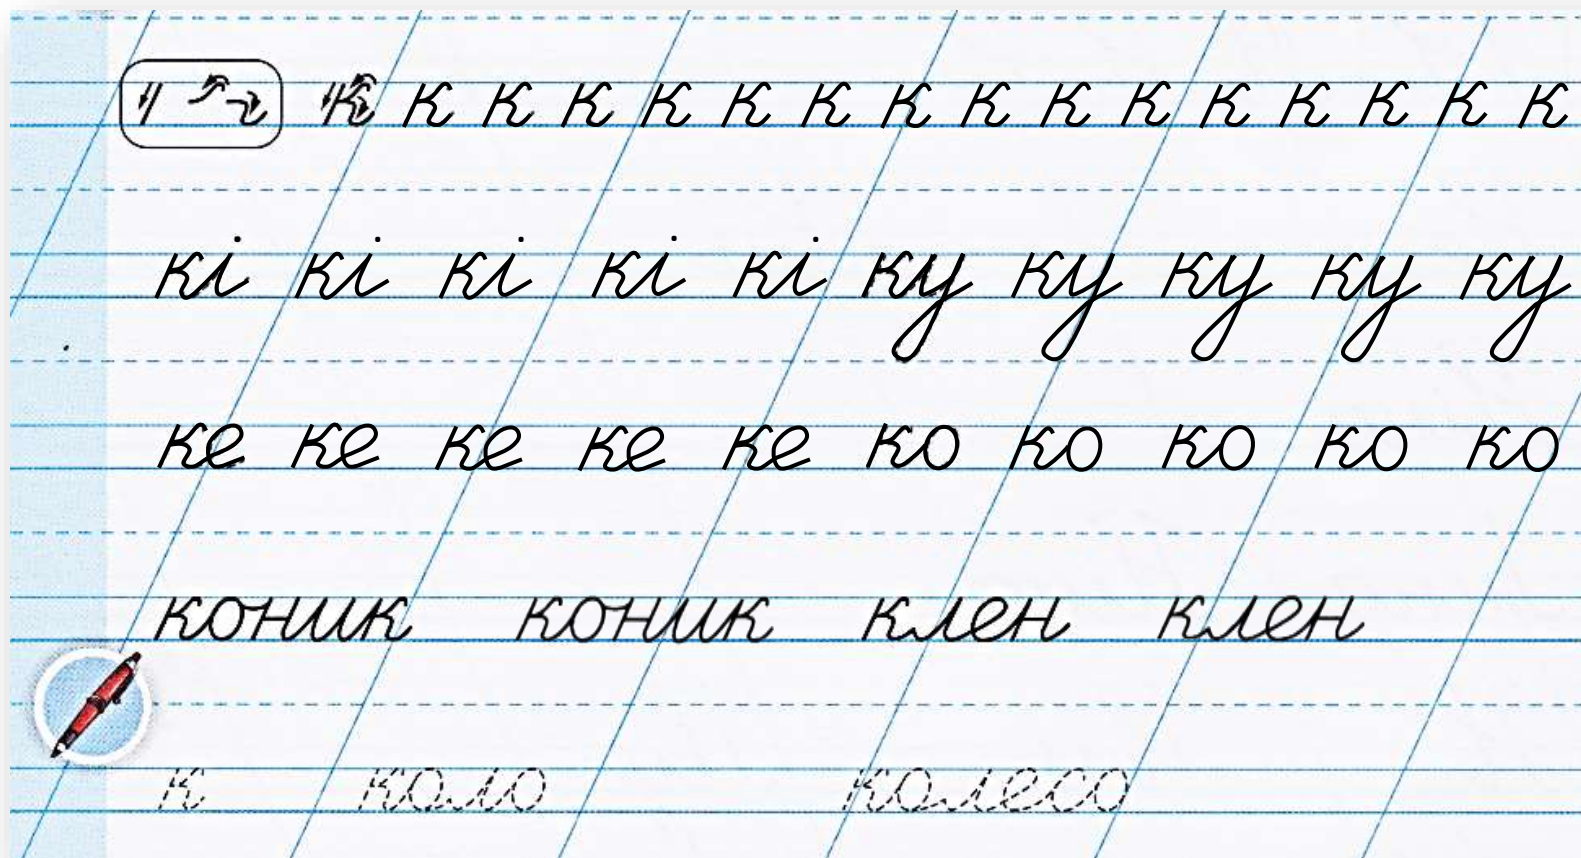 к к к к к к к к к к к к к к к к
кі кі кі кі кі ку ку ку ку ку
ке ке ке ке ке ко ко ко ко ко
коник коник клен клен
к коло колесо